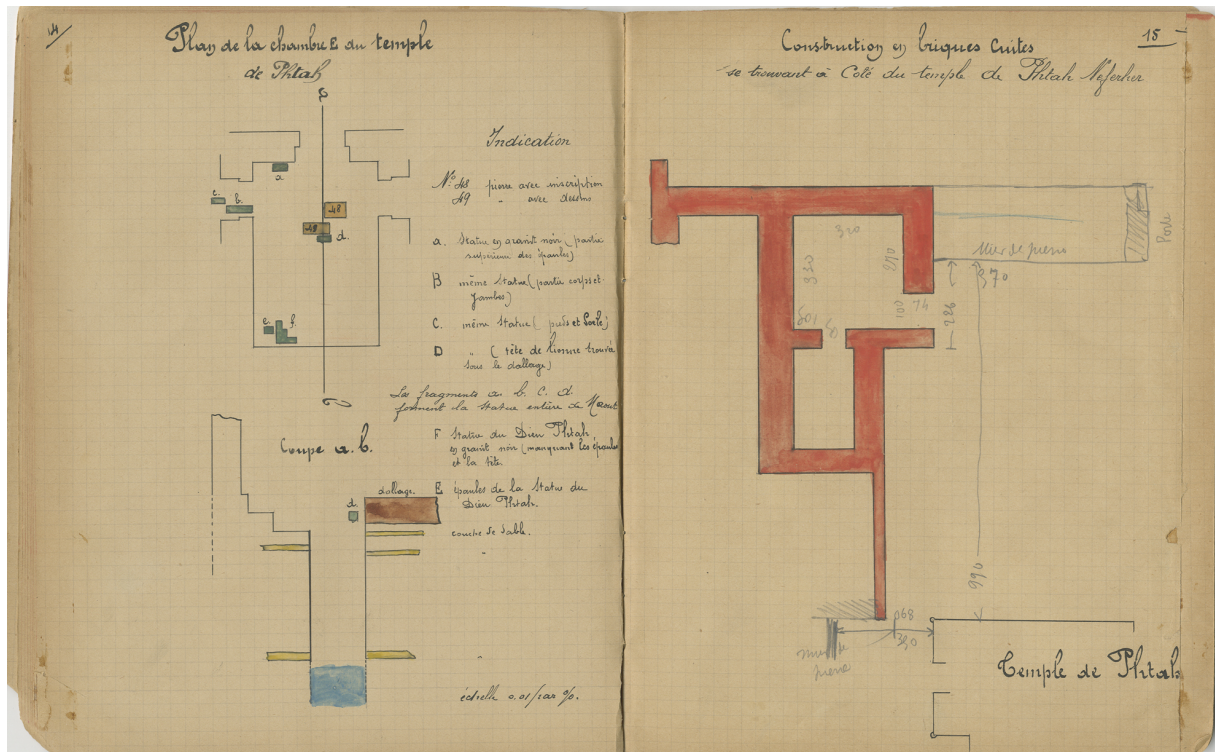 14
Plan de la chambre E du temple
de Phtah
a
a
c.
b.
48
48
d.
e.
f.
Indication
N° 48 pierre avec inscription
49 " avec dessins
a. Statue en granit noir (partie
supérieure des épaules)
B même Statue (partie corps et
jambes)
C. même Statue ( pieds et Socle)
D " ( tête de lionne trouvée
sous le dallage)
Les fragments a. b. C. d.
forment la Statue entière de Maout
F Statue du Dieu Phtah
en granit noir (manquant les épaules
et la tête.
E épaules de la Statue du
Dieu Phtah.
Coupe a. b.
dallage.
d.
couche de sable.
"
"
échelle 0.01 par %.
15
Construction en briques Cuites
se trouvant à Coté du temple de Phtah Neferher
320
330
290
Mur de pierre
Porte
370
74
100
226
80
990
068
390
mur de
pierre
Temple de Phtah